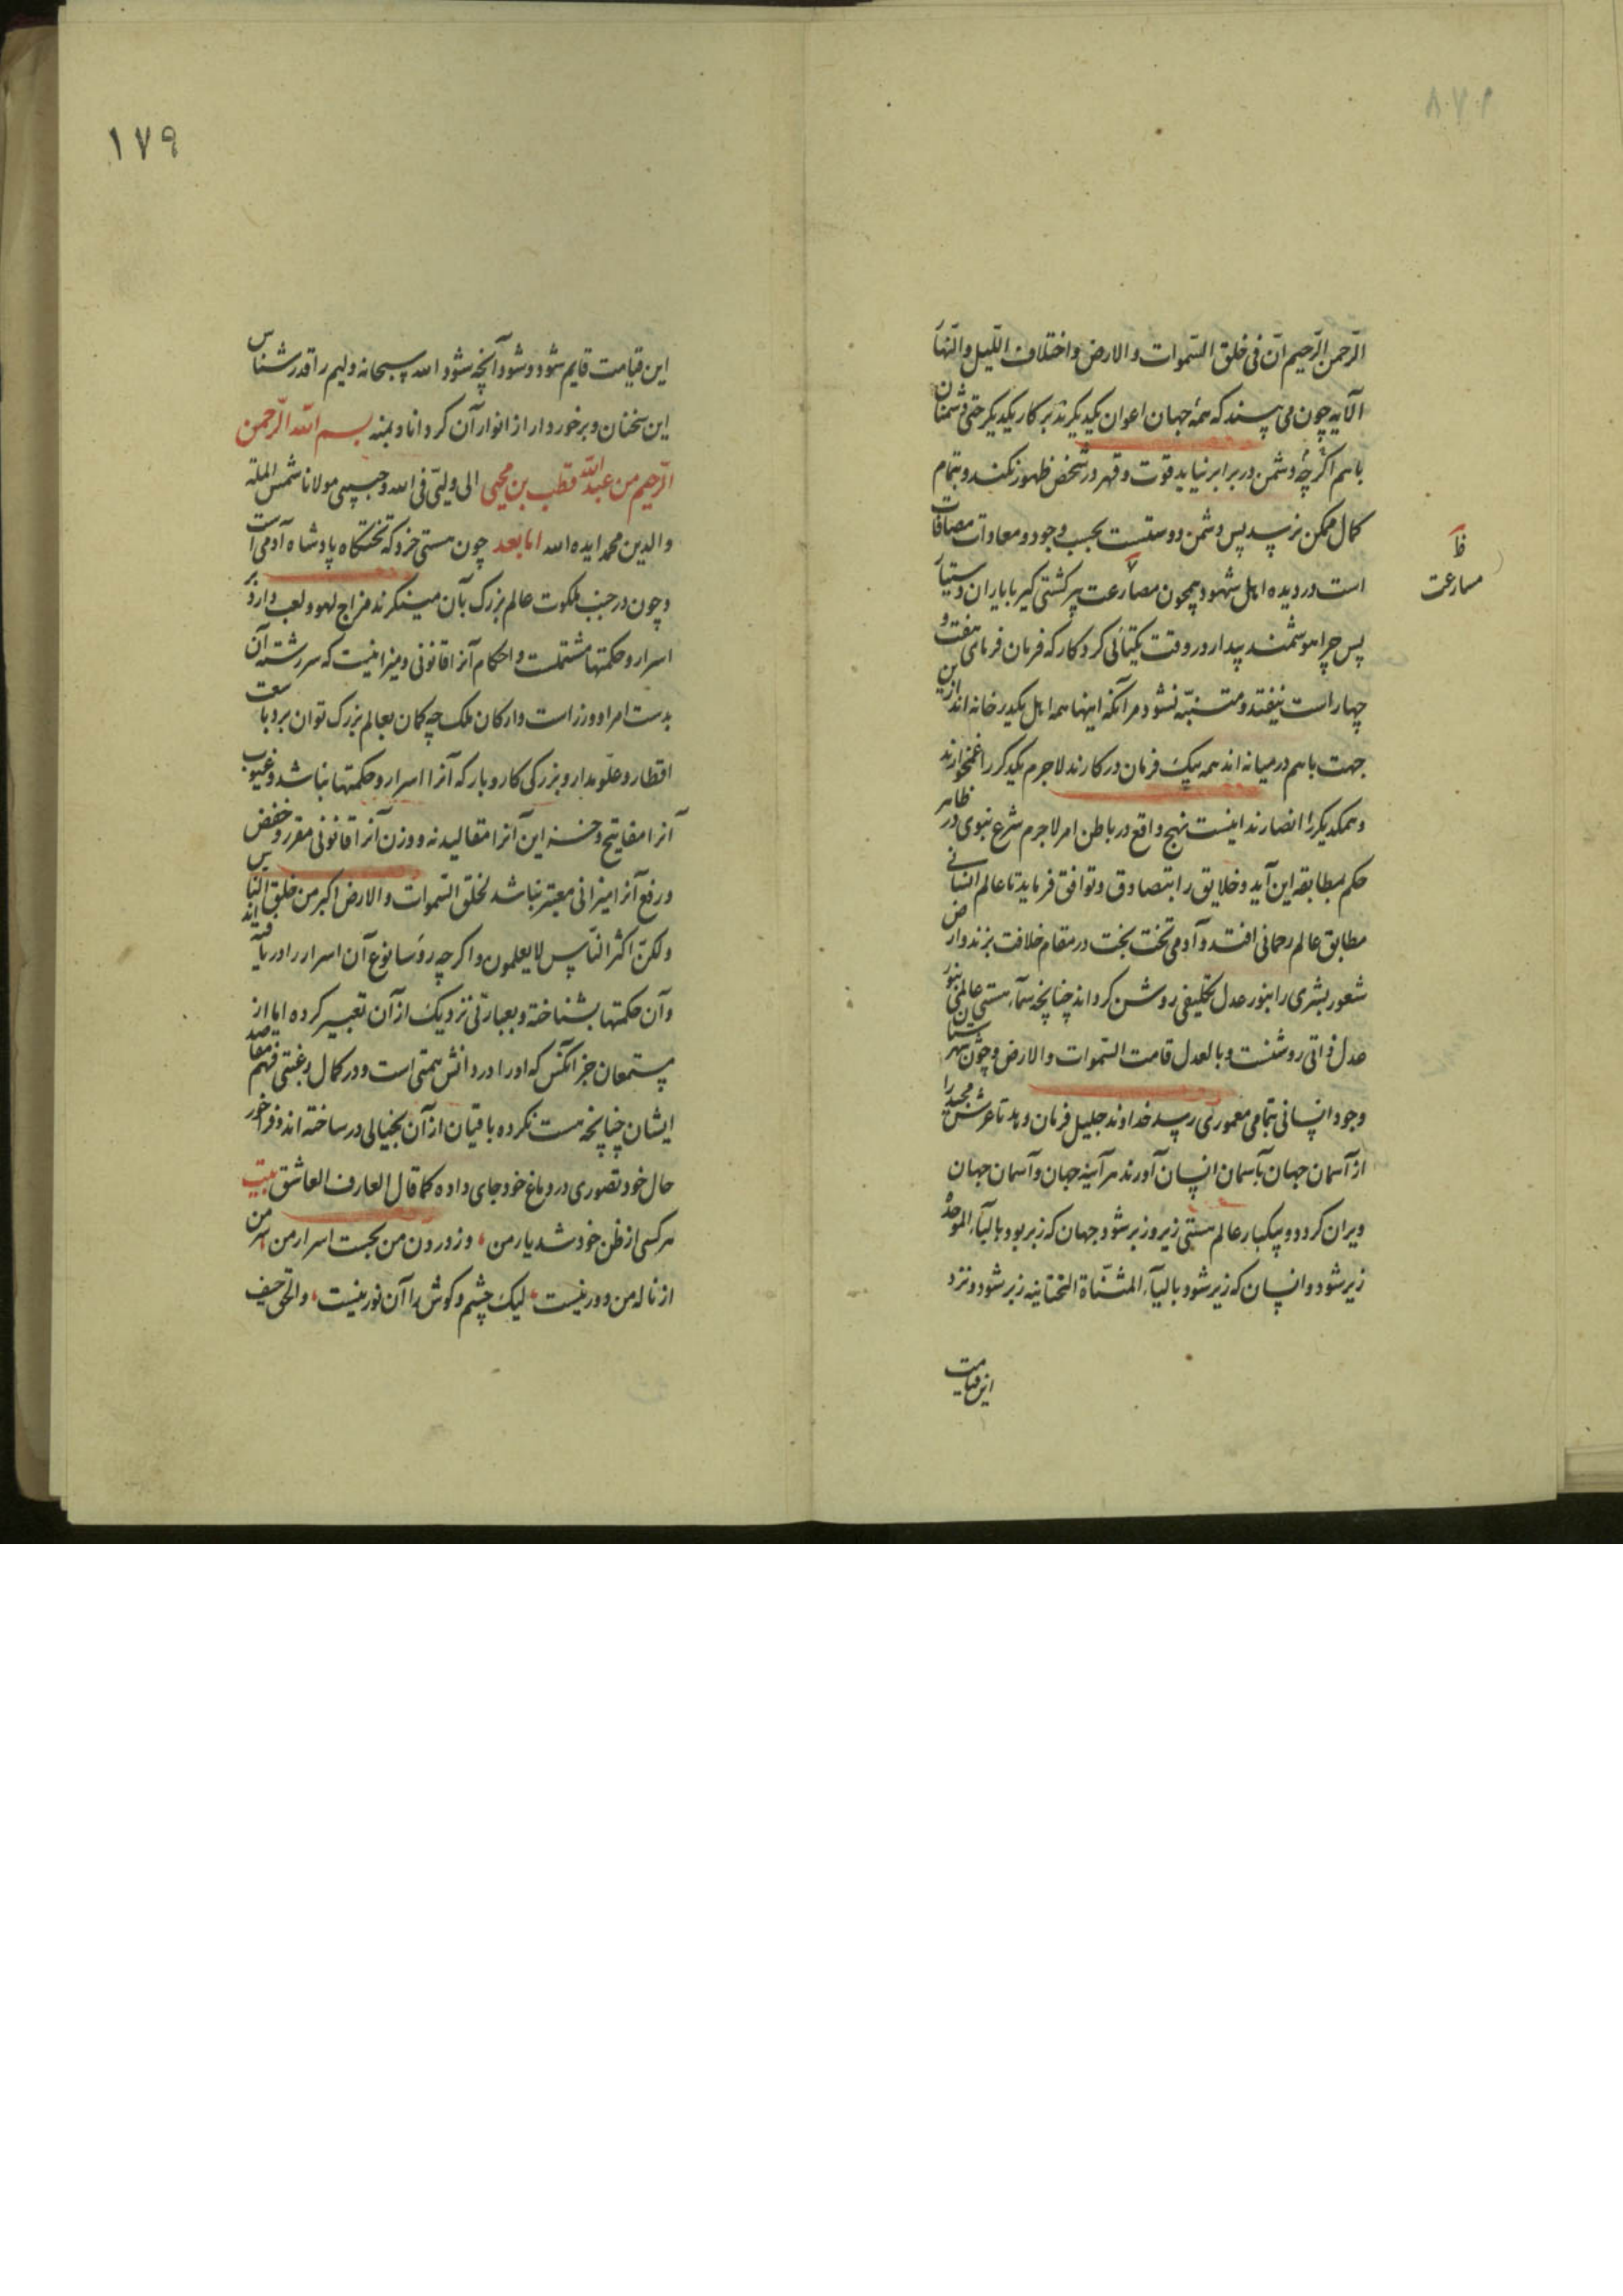 الرحمن الرحیم ان فی خلق السموات والارض واختلاف اللیل والنهار
الآیه چون می پسند که همه جهان اعوان یکدیگرند بر کار یکدیگر حتی دشمنان
باهم اگر چه دشمن در برابر نیاید قوت و قهر در شخص ظهور نکند و بتمام
کمال ممکن نرسد پس دشمن دوستست بحسب وجود و معادات مصافات
است در دیده اهل شهود همچون مصارعت پیر کشتی گیر با یاران دستیار
پس چرا هوشمند بیدار در وقت یکتائی کردکار که فرمان فرمای هفت و
چهار است نیفتد و متنبه نشود مر آنکه اینها همه اهل یکدر خانه اند ازین
جهت باهم در میانه اند همه بیک فرمان در کارند لاجرم یکدیگر را غمخوارند
و همه یکدیگر را انصارند اینست نهج واقع در باطن امر لاجرم شرع نبوی در ظاهر
حکم بمطابقه این آید و خلایق را بتصادق و توافق فرماید تا عالم انسانی
مطابق عالم رحمانی افتد و آدمی تخت بخت در مقام خلافت بزند و ارض
شعور بشری را بنور عدل تکلیفی روشن کرداند چنانچه سماء هستی عالمی بنور
عدل ذاتی روشنست و بالعدل قامت السموات والارض و چون شهرستان
وجود انسانی بتمامی معموری رسد خداوند جلیل فرمان دهد تا عرش مجید را
از آسمان جهان بآسمان انسان آورند هر آینه جهان و آسمان جهان
ویران کردد و بیکبار عالم هستی زیر و زبر شود جهان که زبر بود بالباء الموحدة
زیر شود و انسان که زیر شود بالیاء المثناة التحتانیه زبر شود و نزد
این قیامت
ظ
مسارعت
۱۷۹
این قیامت قایم شود و شود آنچه شود الله سبحانه ولیم را قدرشناس
این سخنان و برخوردار از انوار آن کرداناد بمنه بسم الله الرحمن
الرحیم من عبدالله قطب بن محیی الی ولیی فی الله و حبیبی مولانا شمس الملة
والدین محمد ایده الله اما بعد چون هستی خرد که تختگاه پادشاه آدمی است
و چون در جنب ملکوت عالم بزرک بآن مینگرند مزاج لهو و لعب دارد بر
اسرار و حکمتها مشتملست و احکام آنرا قانونی و میزانیست که سررشته آن
بدست امرا و وزراست و ارکان ملک چه کمان بعالم بزرک توان برد با سعت
اقطار و علو مدار و بزرکی کار و بار که آنرا اسرار و حکمتها نباشد و غیوب
آنرا مفاتیح و خزاین آنرا مقالید نه و وزن آنرا قانونی مقرر و خفض
و رفع آنرا میزانی معتبر نباشد لخلق السموات والارض اکبر من خلق الناس
ولکن اکثر الناس لا یعلمون و اکرچه رؤسا نوع آن اسرار را دریافته اند
و آن حکمتها بشناخته و بعبارتی نزدیک از آن تعبیر کرده اما از
مستمعان جز آنکس که او را در دانش همتی است و در کمال رغبتی فهم مقاصد
ایشان چنانچه هست نکرده باقیان از آن بخیالی در ساخته اند و فراخور
حال خود تصوری در دماغ خود جای داده کما قال العارف العاشق بیت
هر کسی از ظن خود شد یار من، وز درون من نجست اسرار من، سر من
از ناله من دور نیست، لیک چشم و کوش را آن نور نیست، والحق حیف